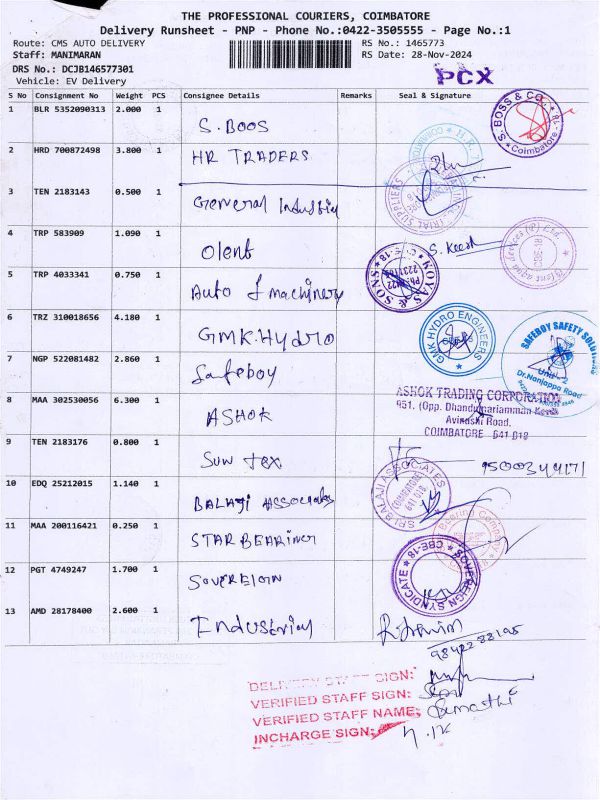 THE PROFESSIONAL COURIERS, COIMBATORE
Delivery Runsheet - PNP - Phone No.:0422-3505555 - Page No.:1
Route: CMS AUTO DELIVERY RS No.: 1465773
Staff: MANIMARAN RS Date: 28-Nov-2024
DRS No.: DCJB146577301
Vehicle: EV Delivery
PCX
S No Consignment No Weight PCS Consignee Details Remarks Seal & Signature
1 BLR 5352090313 2.000 1 S. BOOS
S. BOSS & CO. Coimbatore - 18
2 HRD 700872498 3.800 1 HR TRADERS
3 TEN 2183143 0.500 1 General Industrial
4 TRP 583909 1.090 1 Olent
5 TRP 4033341 0.750 1 Auto & machinery
KOYAS & SONS CBE-18
6 TRZ 310018656 4.180 1 GMK.Hydro
GMK HYDRO ENGINEERS
SAFEBOY SAFETY
Unit - 2
Dr.Nanjappa Road
7 NGP 522081482 2.860 1 Safeboy
8 MAA 302530056 6.300 1 ASHOK
ASHOK TRADING CORPORATION
451, (Opp. Dhandumariamman
Avinashi Road,
COIMBATORE 641 018
9 TEN 2183176 0.800 1 Sun tex 9500344171
10 EDQ 25212015 1.140 1 BALAJI ASSOCIATES
SRI BALAJI ASSOCIATES COIMBATORE 641 018
11 MAA 200116421 0.250 1 STAR BEARING
12 PGT 4749247 1.700 1 SOVEREIGN
SOVEREIGN SYNDICATE CBE-18
13 AMD 28178400 2.600 1 Industrial
9842288195
DELIVERY STAFF SIGN:
VERIFIED STAFF SIGN:
VERIFIED STAFF NAME:
INCHARGE SIGN: